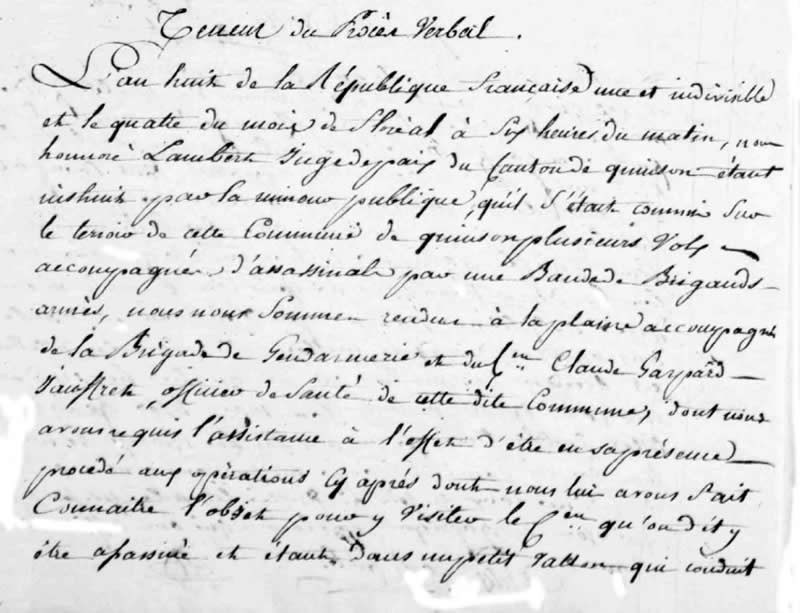 Teneur du Procès Verbal.
L'an huit de la République française une et indivisible
et le quatre du mois de floréal à Six heures du matin, nous
honnoré Lambert Juge de paix du Canton de quinson étant
instruit par la rumour publique, qu'il s'était commis Sur
le terroir de cette Commune de quinson plusieurs Vols
accompagnés d'assassinats par une Bande de Brigands
armés, nous nous Sommes rendus à la plaine accompagnés
de la Brigade de Gendarmerie et du Cen Claude Gaspard
Jauffret, officier de Santé de cette dite Commune, dont nous
avons requis l'assistance à l'effet d'être en sa présence
procédé aux opérations Cy après dont nous lui avons fait
Connaitre l'objet pour y Visiter le Cen qu'on dit y
être assassiné et étant dans un petit Vallon qui conduit